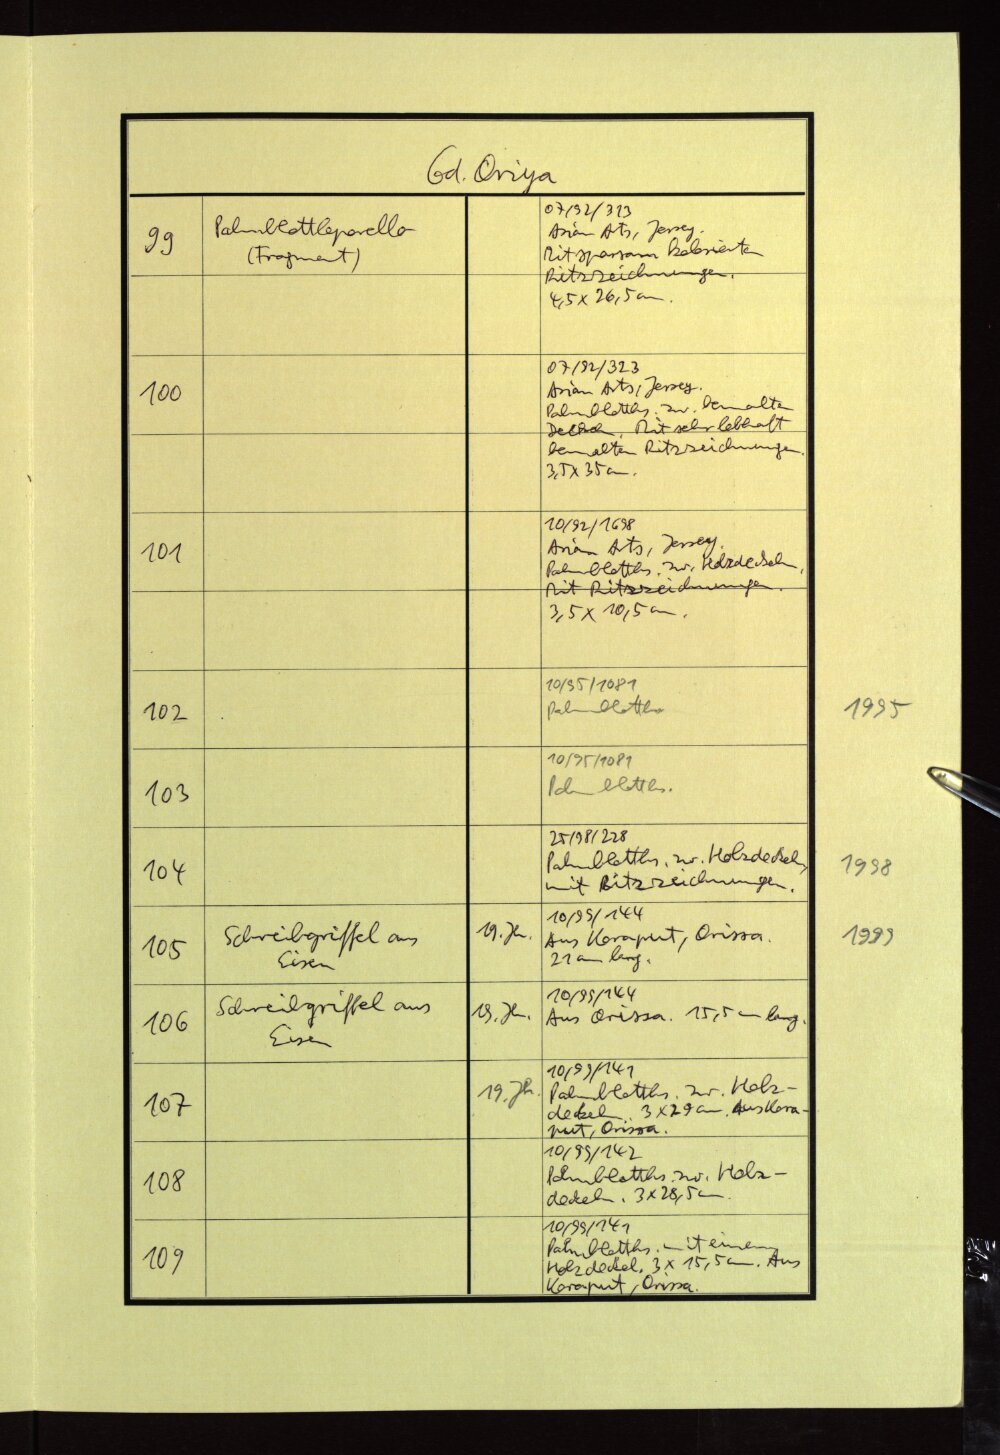 6d. Oriya
99
Palmblattleporello
(Fragment)
07/92/313
Asian Arts, Jersey.
Mit sparsam kolorierten
Ritzzeichnungen.
4,5 x 26,5 cm.
100
07/92/323
Asian Arts, Jersey.
Palmblatths. zw. bemalten
Deckeln. Mit sehr lebhaft
bemalten Ritzzeichnungen.
3,5 x 35 cm.
101
10/92/1698
Asian Arts, Jersey.
Palmblatths. zw. Holzdeckeln.
Mit Ritzzeichnungen.
3,5 x 10,5 cm.
102
10/95/1081
Palmblatths
1995
103
10/95/1081
Palmblatths.
104
25/98/228
Palmblatths. zw. Holzdeckeln
mit Ritzzeichnungen.
1998
105
Schreibgriffel aus
Eisen
19. Jh.
10/99/144
Aus Koraput, Orissa.
21 cm lang.
1999
106
Schreibgriffel aus
Eisen
19. Jh.
10/99/144
Aus Orissa. 15,5 cm lang.
107
19. Jh.
10/99/141
Palmblatths. zw. Holz-
deckeln. 3 x 29 cm. Aus Kora-
put, Orissa.
108
10/99/142
Palmblatths. zw. Holz-
deckeln. 3 x 28,5 cm.
109
10/99/141
Palmblatths. mit einem
Holzdeckel. 3 x 15,5 cm. Aus
Koraput, Orissa.